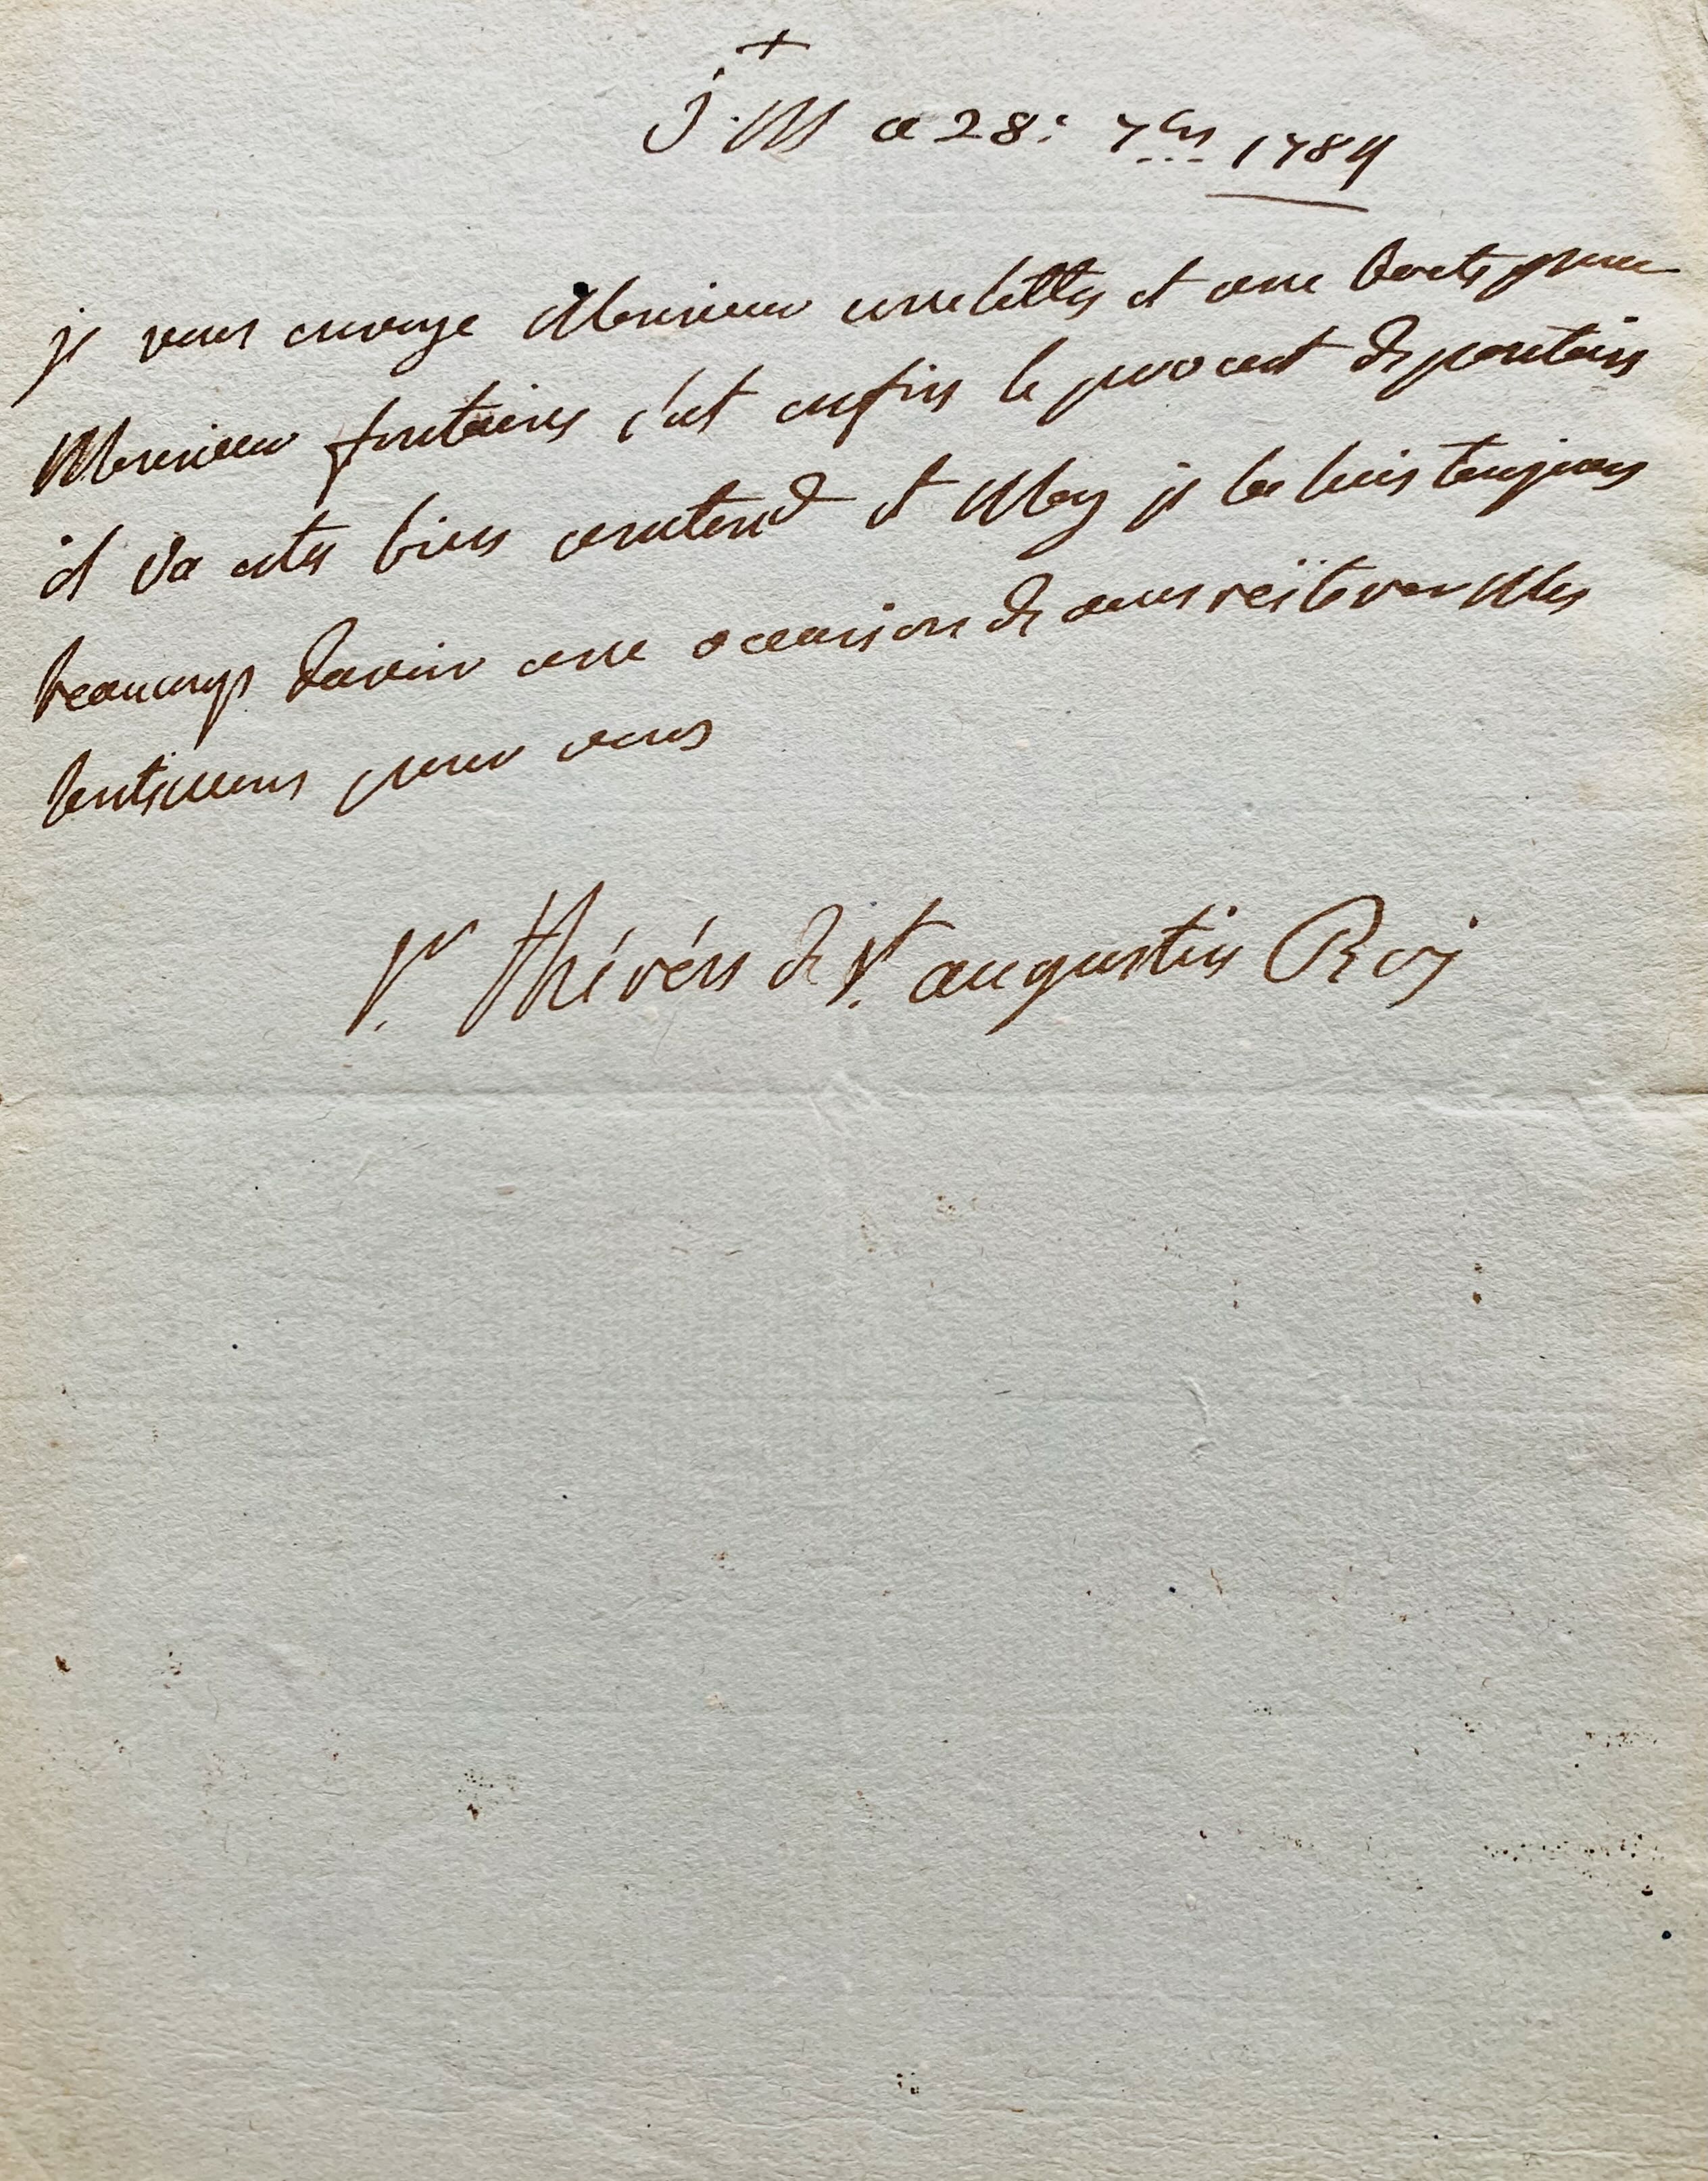 +
J. M ce 28e 7bre 1784
je vous envoye Monsieur une lettre et une boete pour
Monsieur fontaine c'est enfin le de pontoise
il va etre bien content et Moy je la suis toujours
beaucoup davoir une occasion de vous reïterer Mes
sentimens pour vous
Sr thérése de St augustin